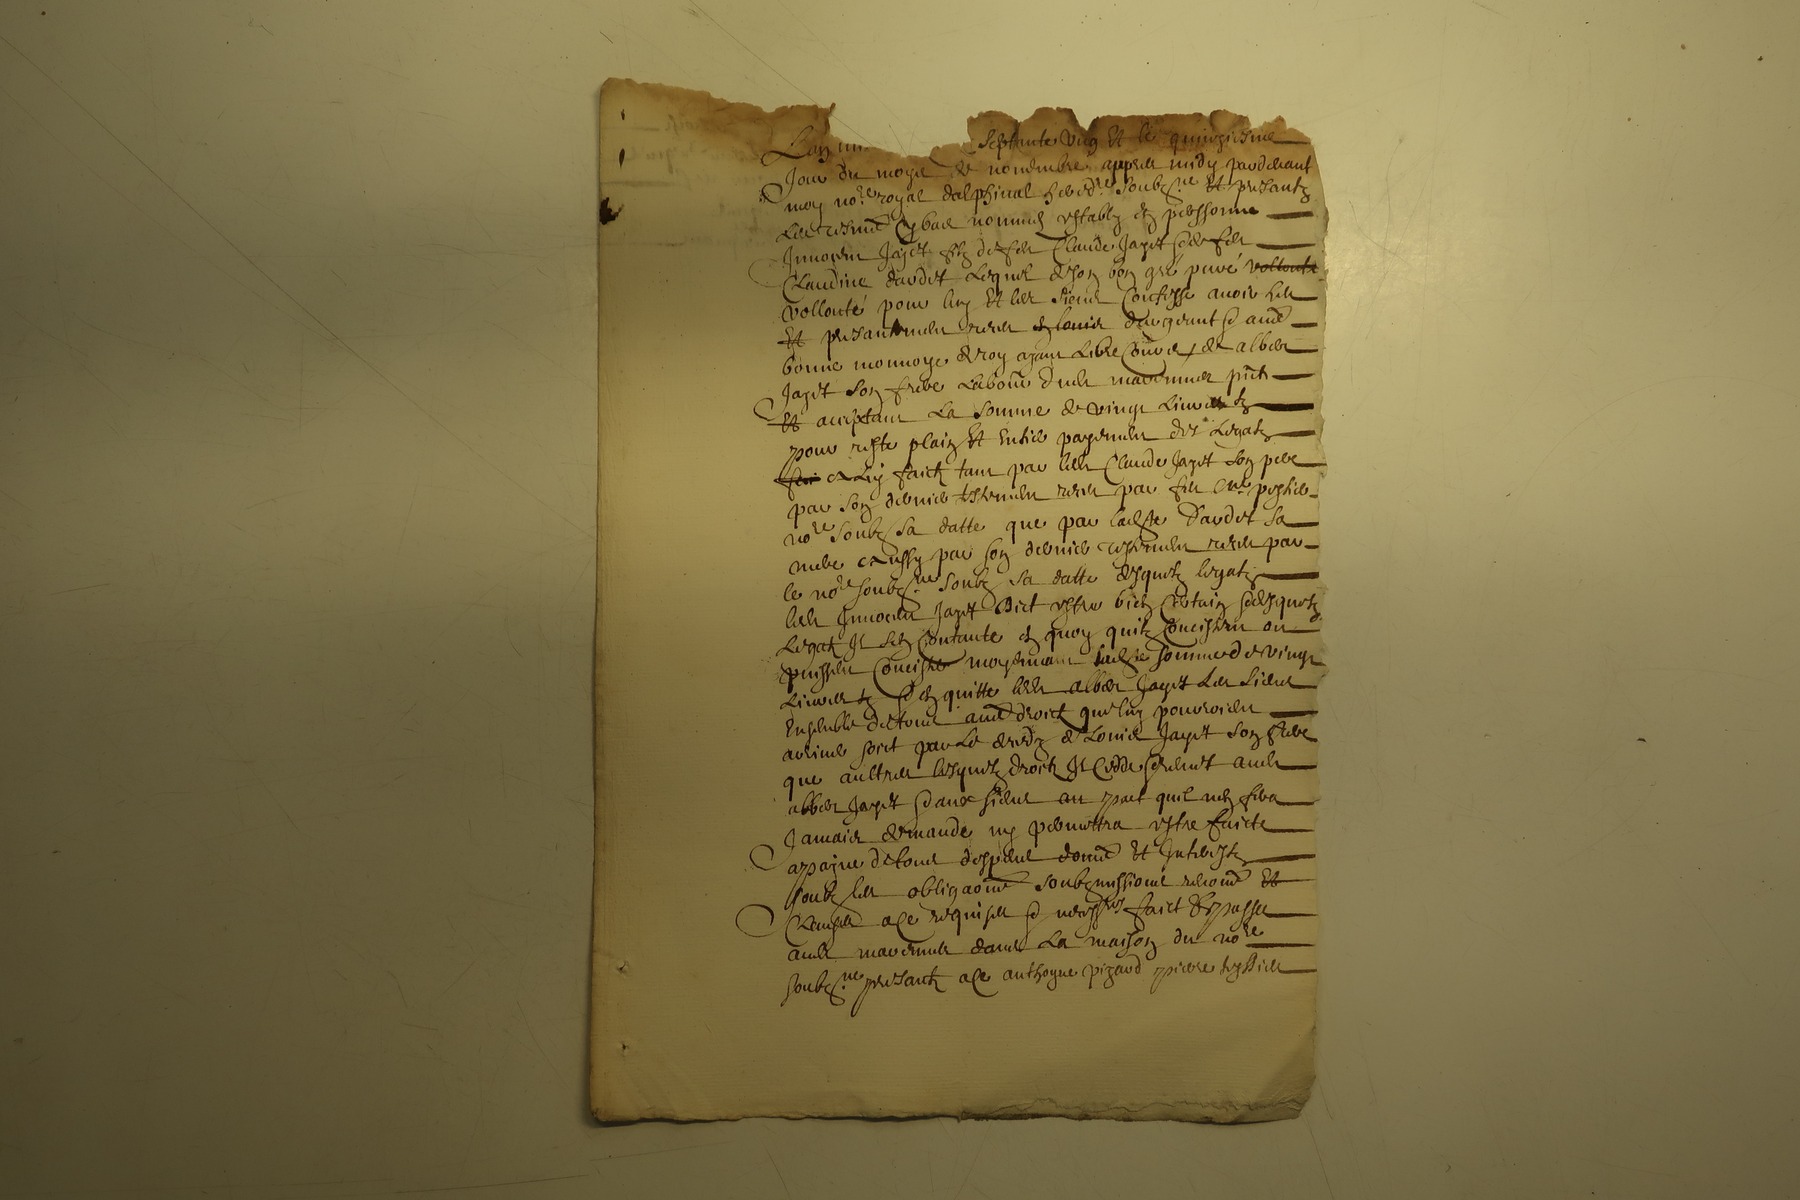 Lan mi septante ung Et le quinziesme
Jour du moys de novembre appres midy pardevant
moy no.re royal dalphinal heredre soubz.ne Et presantz
Les tesmo bas nommes estably en perssonne
Innocen Jayet filz de feu Claude Jayet & de feu
Claudine dardet Lequel de son bon gré puré vollonte
vollonté pour luy Et les siens Confesse avoir heu
Et presantemen receu en louis dargent & aue
bonne monnoye de roy ayant Libre Cours / de
Jayet son frere Laboure dud pnt
Et acceptant La somme de vingt Livres tz
pour reste plain Et entier payemen des Legatz
a Luy faictz tant par led Claude Jayet son pere
par son dernier testemen receu par feu
no.re soubz sa datte que par ladite Dardet sa
mere aussy par son dernier testemen receu par
le no.re soubz.ne soubz sa datte desquelz legatz
led Innocen Jayet Dict estre bien Certain & desquelz
Legatz Il sen Contante en quoy quilz Concisten ou
puissen Concister moyennant ladite somme de vingt
Livres tz & en quitte led Jayet Les siens
Ensemble de tous droictz que luy pourroien
arriver soict par Le de Louis Jayet son frere
que aultres lesquelz droictz Il Cedde & remet aud
Jayet & aux siens pact quil nen fera
Jamais demande ny permettra estre faicte
a payne de tous despens doma Et Interestz
soubz les obligaons soubzmissions renons Et
Clauses a ce requises & necess.res faict & passe
aud dans La maison du no.re
soubz.ne presantz a ce anthoyne pizard piere